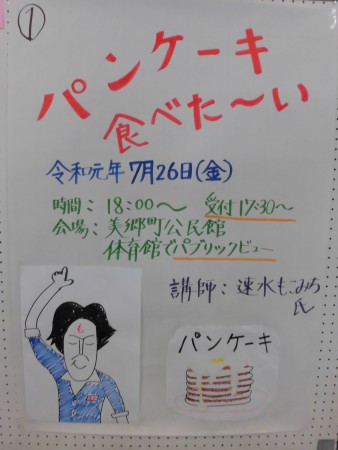 ①
パンケーキ
食べた〜い
令和元年 7月26日(金)
時間：18:00〜 受付17:30〜
会場：美郷町公民館
体育館でパブリックビュー
講師：速水もこみち
氏
パンケーキ